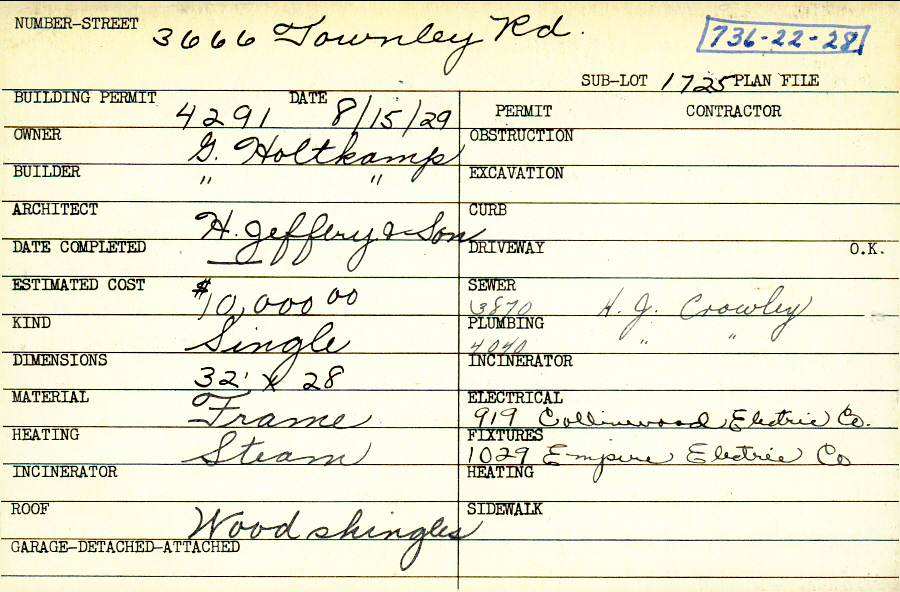 NUMBER-STREET 3666 Townley Rd. 736-22-28
SUB-LOT 1725 PLAN FILE
BUILDING PERMIT 4291 DATE 8/15/29 PERMIT CONTRACTOR
OWNER G. Holtkamp OBSTRUCTION
BUILDER " " EXCAVATION
ARCHITECT H. Jeffery & Son CURB
DATE COMPLETED DRIVEWAY O.K.
ESTIMATED COST $10,000 00 SEWER 3870 H. J. Crowley
KIND Single PLUMBING 4040 " "
DIMENSIONS 32' x 28 INCINERATOR
MATERIAL Frame ELECTRICAL 919 Collinwood Electric Co.
HEATING Steam FIXTURES 1029 Empire Electric Co
INCINERATOR HEATING
ROOF Wood shingles SIDEWALK
GARAGE-DETACHED-ATTACHED